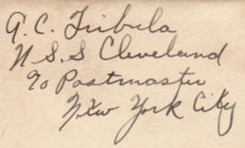 G. C. Tribela
U S S Cleveland
% Postmaster
New York City